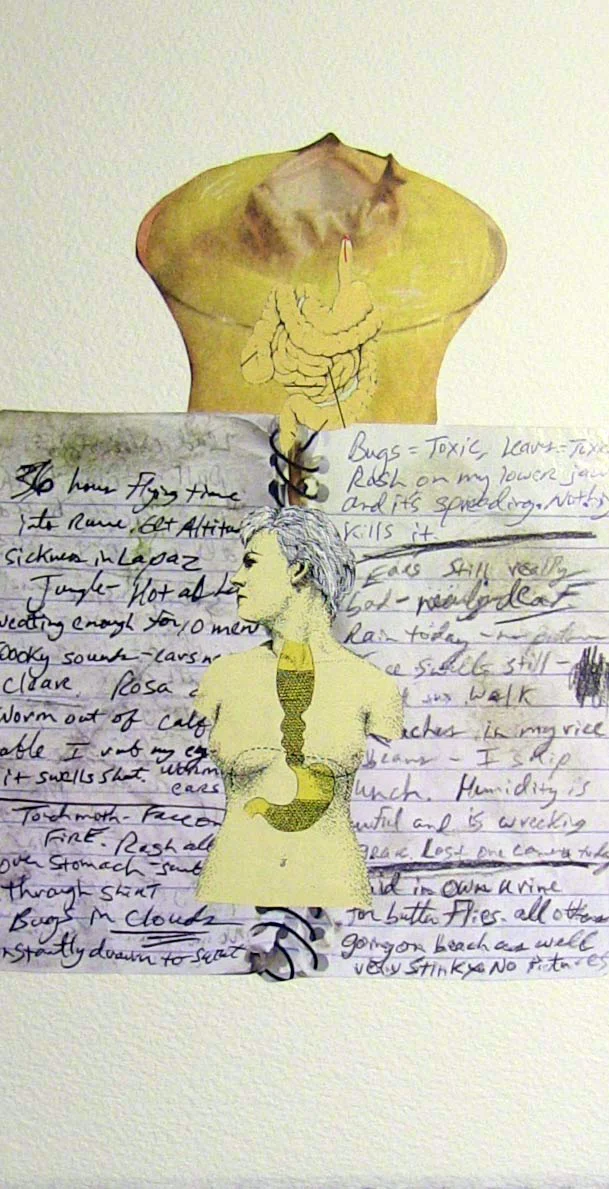 36 hour Flying time
into Rurre. Get Altitu
sickness in Lapaz
Jungle - Hot as
weating enough for 10 men
Spooky sounds - ears n
cleare. Rosa
Worm out of calf
able I rub my eye
it swells shut. worm
ears
Torchmoth - Face on
FIRE. Rash all
over Stomach -
through shirt
Bugs in clouds
nstantly drawn to sweat
Bugs = Toxic, Leaves = Toxic
Rash on my lower jaw
and it's spreading. Nothing
kills it.
Ears still really
bad - nearly deaf
Rain today - no
smells still -
walk
aches in my rice
beans - I skip
unch. Humidity is
wful and is wrecking
gear. Lost one camera today
in own urine
for butter Flies. all others
going on beach as well
very Stinky. No Pictures